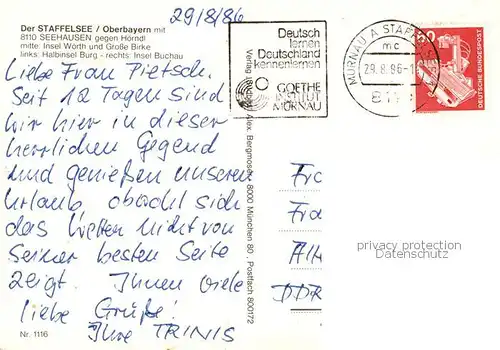 29/8/86
Der STAFFELSEE / Oberbayern mit
8110 SEEHAUSEN gegen Hörndl
mitte: Insel Wörth und Große Birke
links: Halbinsel Burg - rechts: Insel Buchau
Liebe Frau Pietsch,
Seit 12 Tagen sind
wir hier in dieser
herrlichen Gegend
und genießen unseren
Urlaub, obwohl sich
das Wetter nicht von
Seiner besten Seite
zeigt. Ihnen viele
liebe Grüße!
Ihre TRINIS
Nr. 1116
Alex. Bergmoser, 8000 München 80, Postfach 800172
Deutsch
lernen
Deutschland
kennenlernen
GOETHE
INSTITUT
MURNAU
MURNAU A STAFFELSEE
mc
29.8.86-1
DEUTSCHE BUNDESPOST
Fra
Alt
DDR
privacy protection
Datenschutz